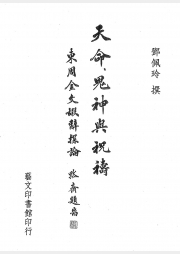 鄧佩玲 撰
天命、鬼神與祝禱
東周金文嘏辭探論
藝文印書館印行